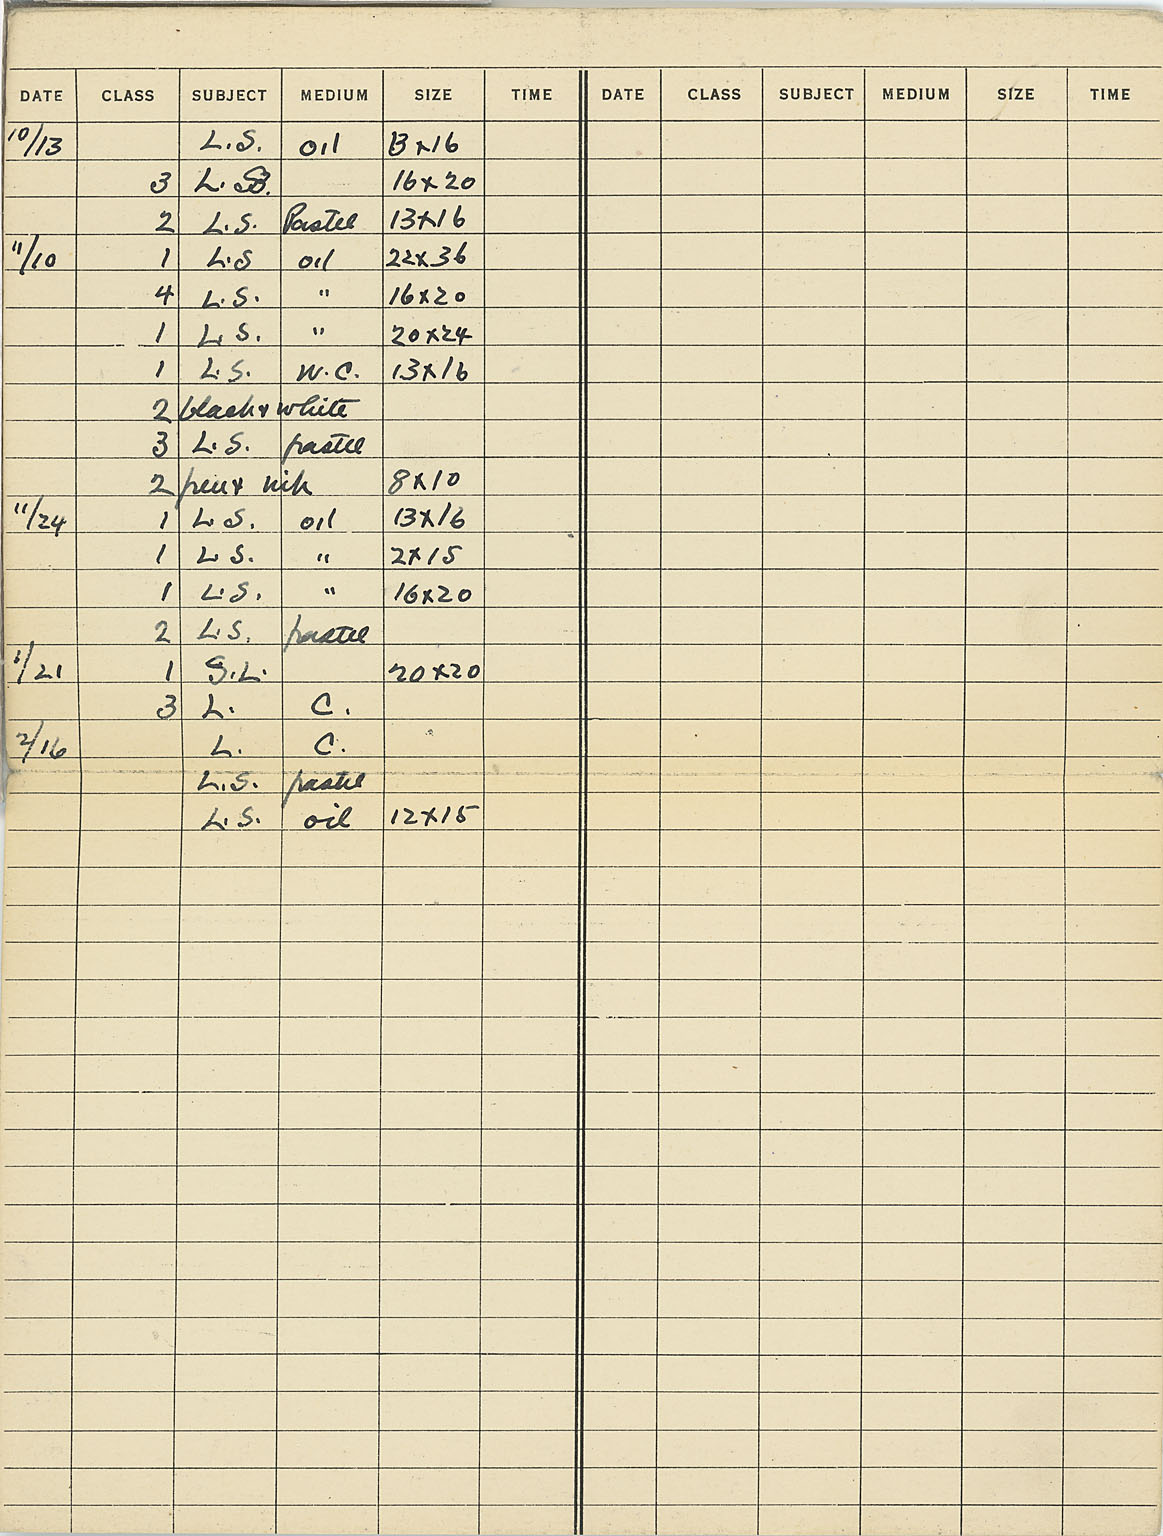 DATE CLASS SUBJECT MEDIUM SIZE TIME DATE CLASS SUBJECT MEDIUM SIZE TIME
10/13 L.S. oil 13x16
3 L. 16x20
2 L.S. Pastel 13x16
11/10 1 L.S oil 22x36
4 L.S. " 16x20
1 L.S. " 20x24
1 L.S. W.C. 13x16
2 black & white
3 L.S. pastel
2 pen & ink 8x10
11/24 1 L.S. oil 13x16
1 L.S. " 2x15
1 L.S. " 16x20
2 L.S. pastel
1/21 1 S.L. 20x20
3 L. C.
2/16 L. C.
L.S. pastel
L.S. oil 12x15